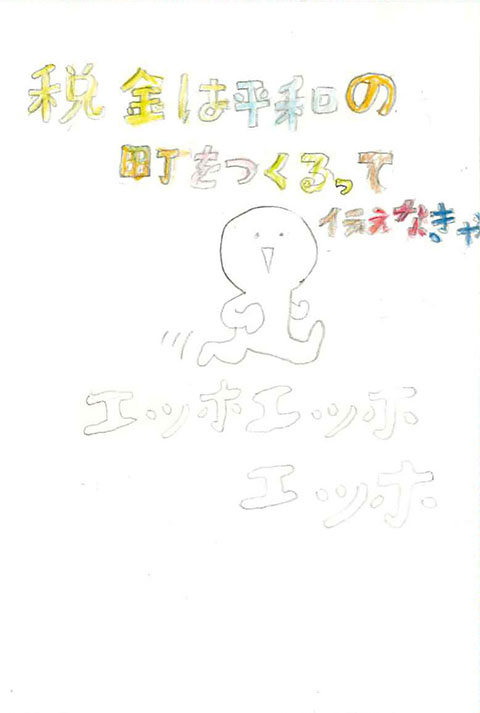 税金は平和の
町をつくるって
伝えなきゃ
エッホエッホ
エッホ